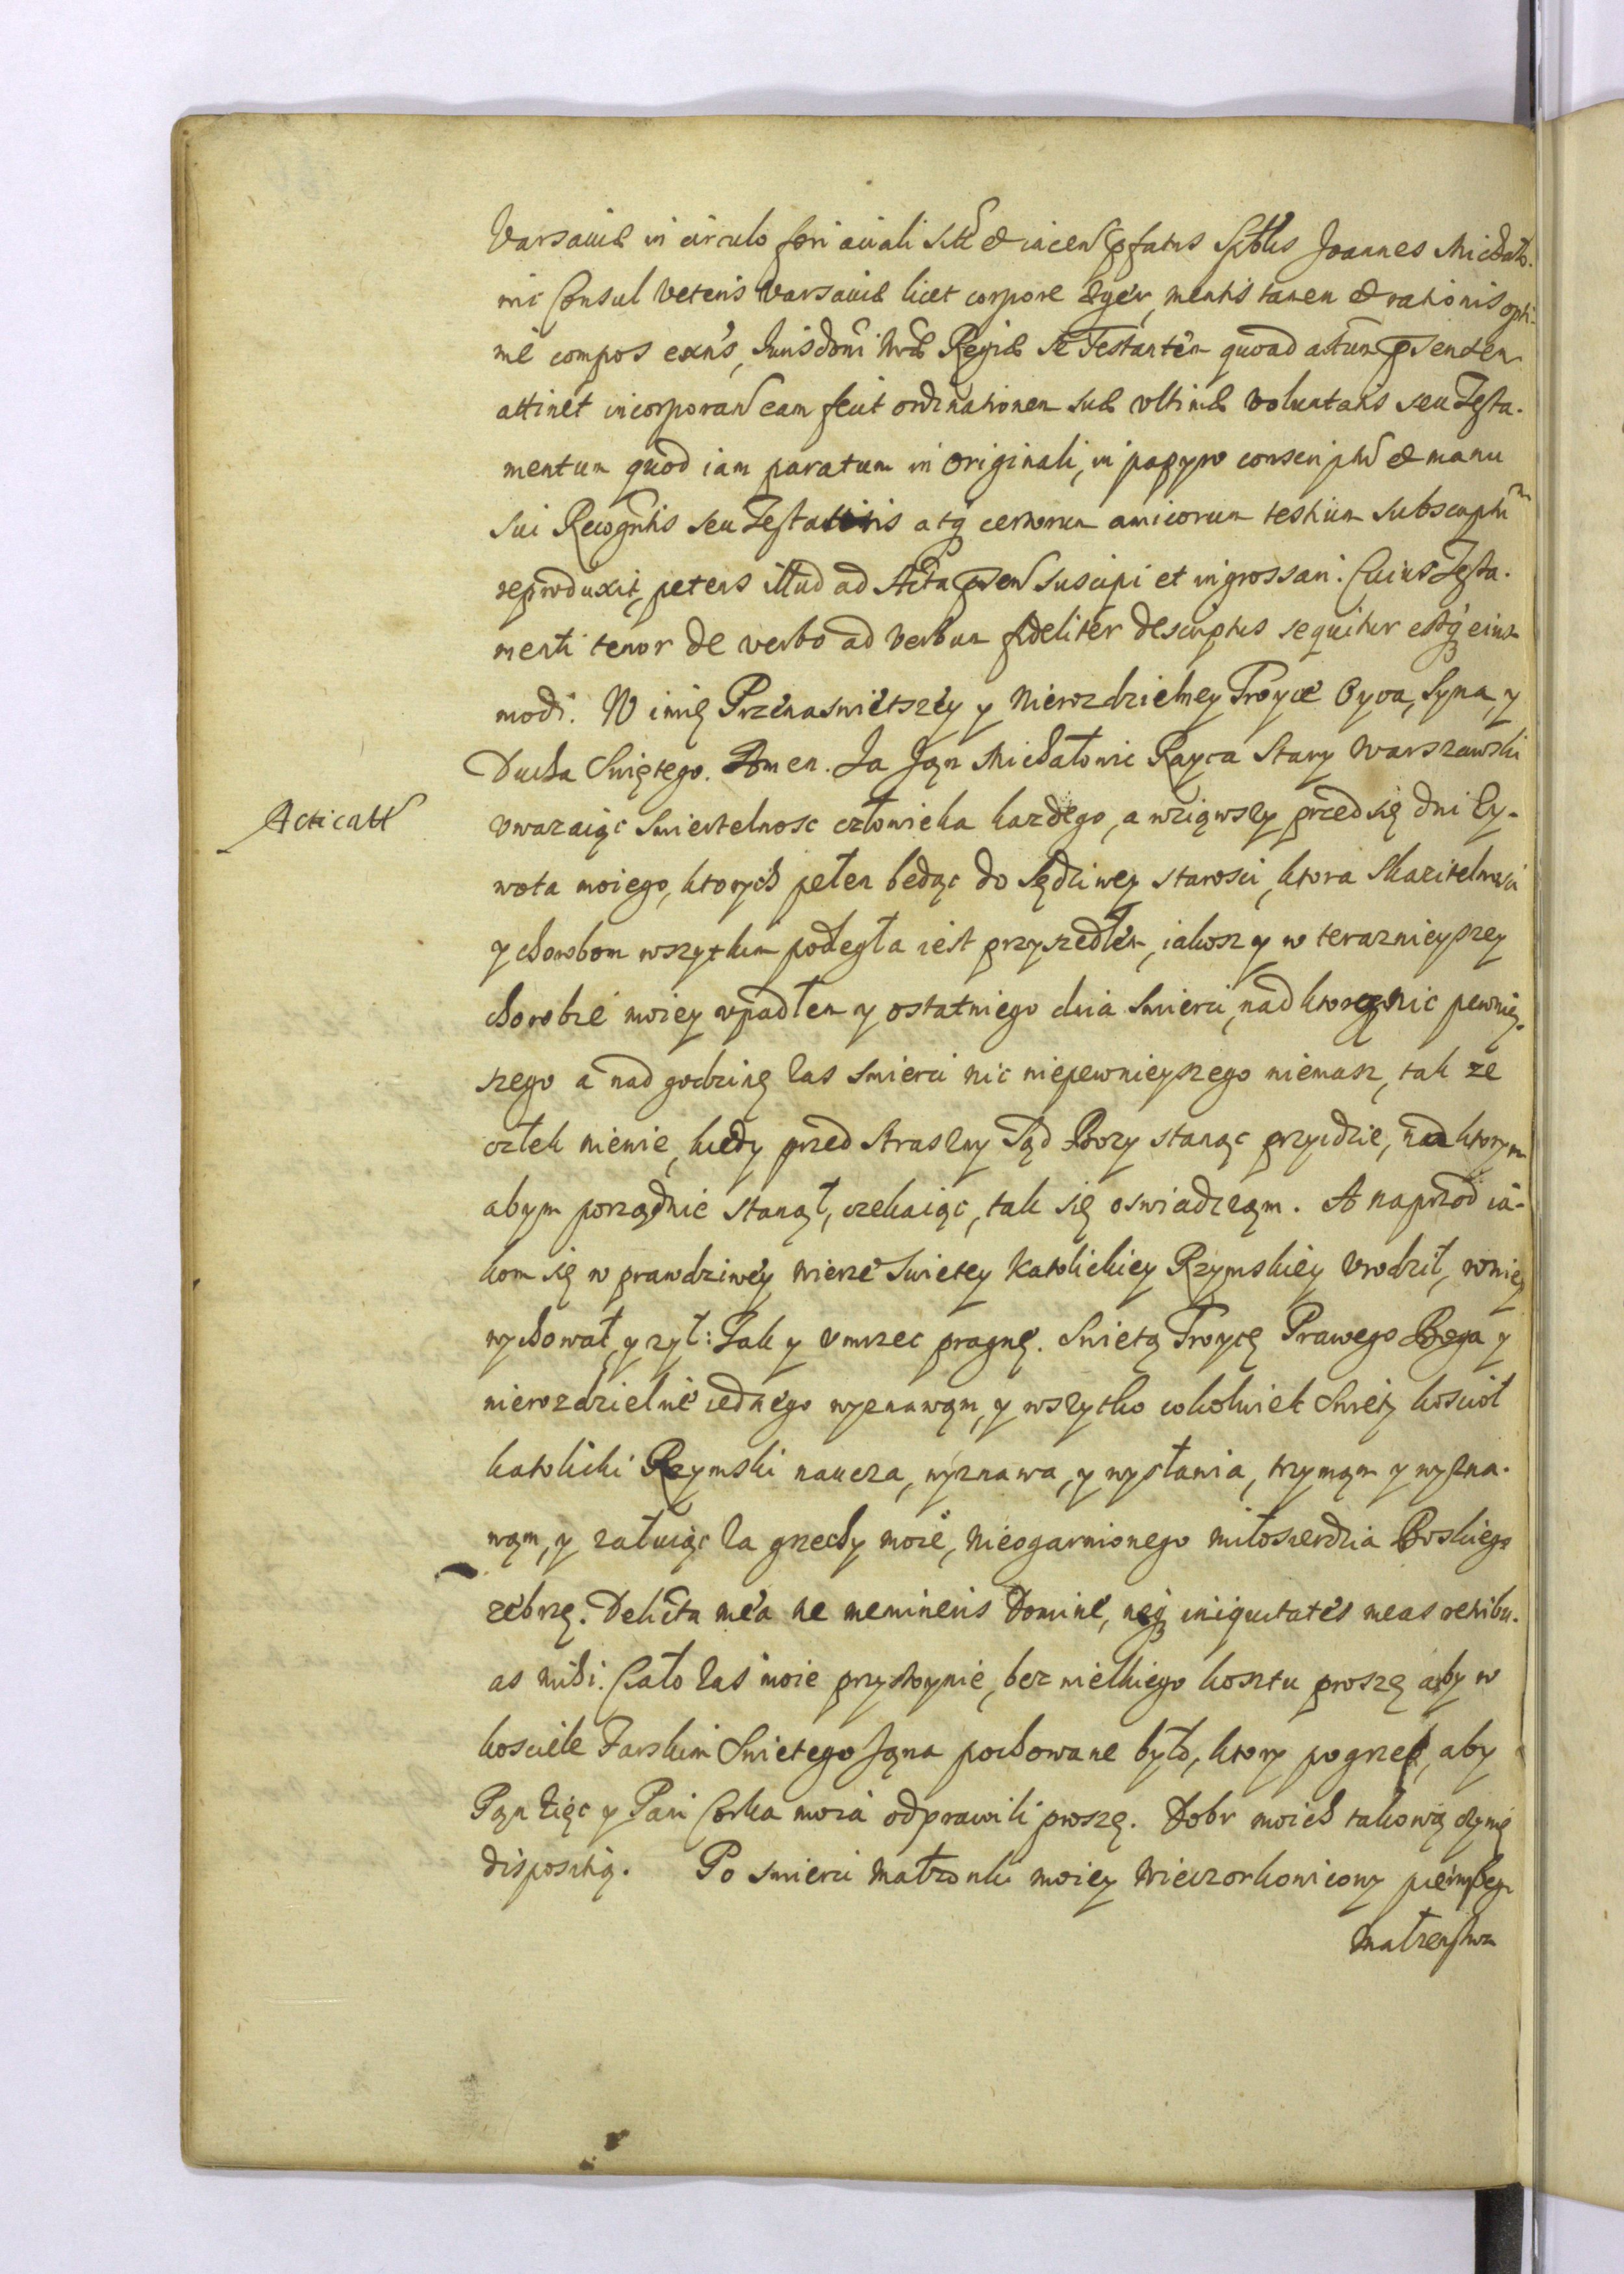 Varsaviæ in circulo fori civali sitt et iacen pfatus Sptblis Joannes Michało-
wic Consul Veteris Varsaviæ licet corpore æger, mentis tamen et rationis opti-
me compos exns, Jurisdoni Regiæ se Testantem quoad actum pͣsentem
attinet incorporan eam fecit ordinationem suæ ultimæ voluntatis seu Testa-
mentum quod iam paratum in originali, in papyro conscriptu et manu
sui Recogntis seu Testantis atq certorum amicorum testium subscriptu
reproduxit, petens illud ad Acta psen suscipi et ingrossari. Cuius Testa-
menti tenor de verbo ad verbum fideliter descriptus sequitur estq eius-
modi. W imię Przenaswiętszey y Nierozdzielney Troyce Oyca, Syna, y
Ducha Swiętego. Amen. Ja Jąn Michałowic Rayca Stary Warszawski
Acticatt
vwazaiąc smiertelnosc człowieka kazdego, a wziąwszy przed się dni Zy-
wota moiego, ktorych pełen bedąc do Sędziwey starosci, ktora Skazitelnosci
y chorobom wszytkim podległa iest przyszedłem, iakosz y w teraznieyszey
chorobie moiey vpadłem y ostatniego dnia smierci, nad ktorego nic pewniey-
szego a nad godzinę zas smierci nic niepewnieyszego niemasz, tak ze
człek niewie, kiedy przed straszny Sąd Bozy stanąc przyidzie, nad ktorym
abym porządnie stanął, czekaiąc, tak się oswiadcząm. A naprzod ia-
kom się w prawdziwey wierze Swietey Katolickiey Rzymskiey vrodził, w niey
wychował, y zył: Tak y vmrzec pragnę. Swietą Troycę Prawego Boga y
nierozdzielnie iednego wyznawąm, y wszytko cokolwiek Swięty kosciół
katolicki Rzymski naucza, wyznawa, y wysławia, trzymąm y wyzna-
wąm, y załuiąc za grzechy moie, nieogarnionego miłosierdzia Boskiego
zebrzę. Delicta mea ne memineris Domine, neq iniquitates meas retribu-
as mihi. Ciało zas moie przystoynie, bez wielkiego kosztu proszę aby w
kosciele Farskim Swietego Jąna pochowane było, ktory pogrzeb, aby
Pąn Zięc y Pani Corka moia odprawili proszę. Dobr moich takową czynię
dispositią. Po smierci Małzonki moiey Wieczorkowicowny pierwszego
Małzenstwa